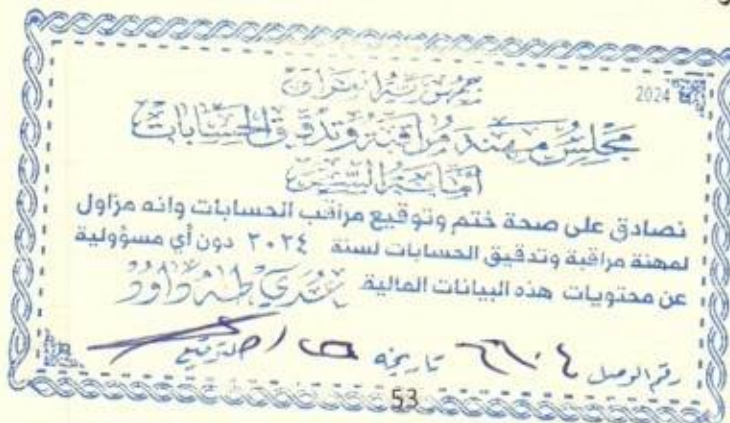 2024
جمهورية العراق
مجلس مهنة مراقبة وتدقيق الحسابات
أمانة السر
نصادق على صحة ختم وتوقيع مراقب الحسابات وانه مزاول
لمهنة مراقبة وتدقيق الحسابات لسنة ٢٠٢٤ دون أي مسؤولية
عن محتويات هذه البيانات المالية
طه داود
رقم الوصل ٦٦٠٤ تاريخه التوقيع
53